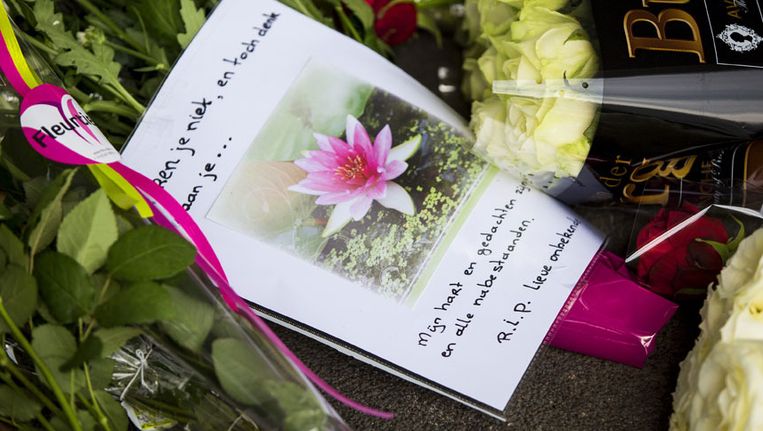 ken je niet, en toch denk
aan je ...
Mijn hart en gedachten zijn
en alle nabestaanden.
R.i.p. lieve onbekende
Fleurie
Bu